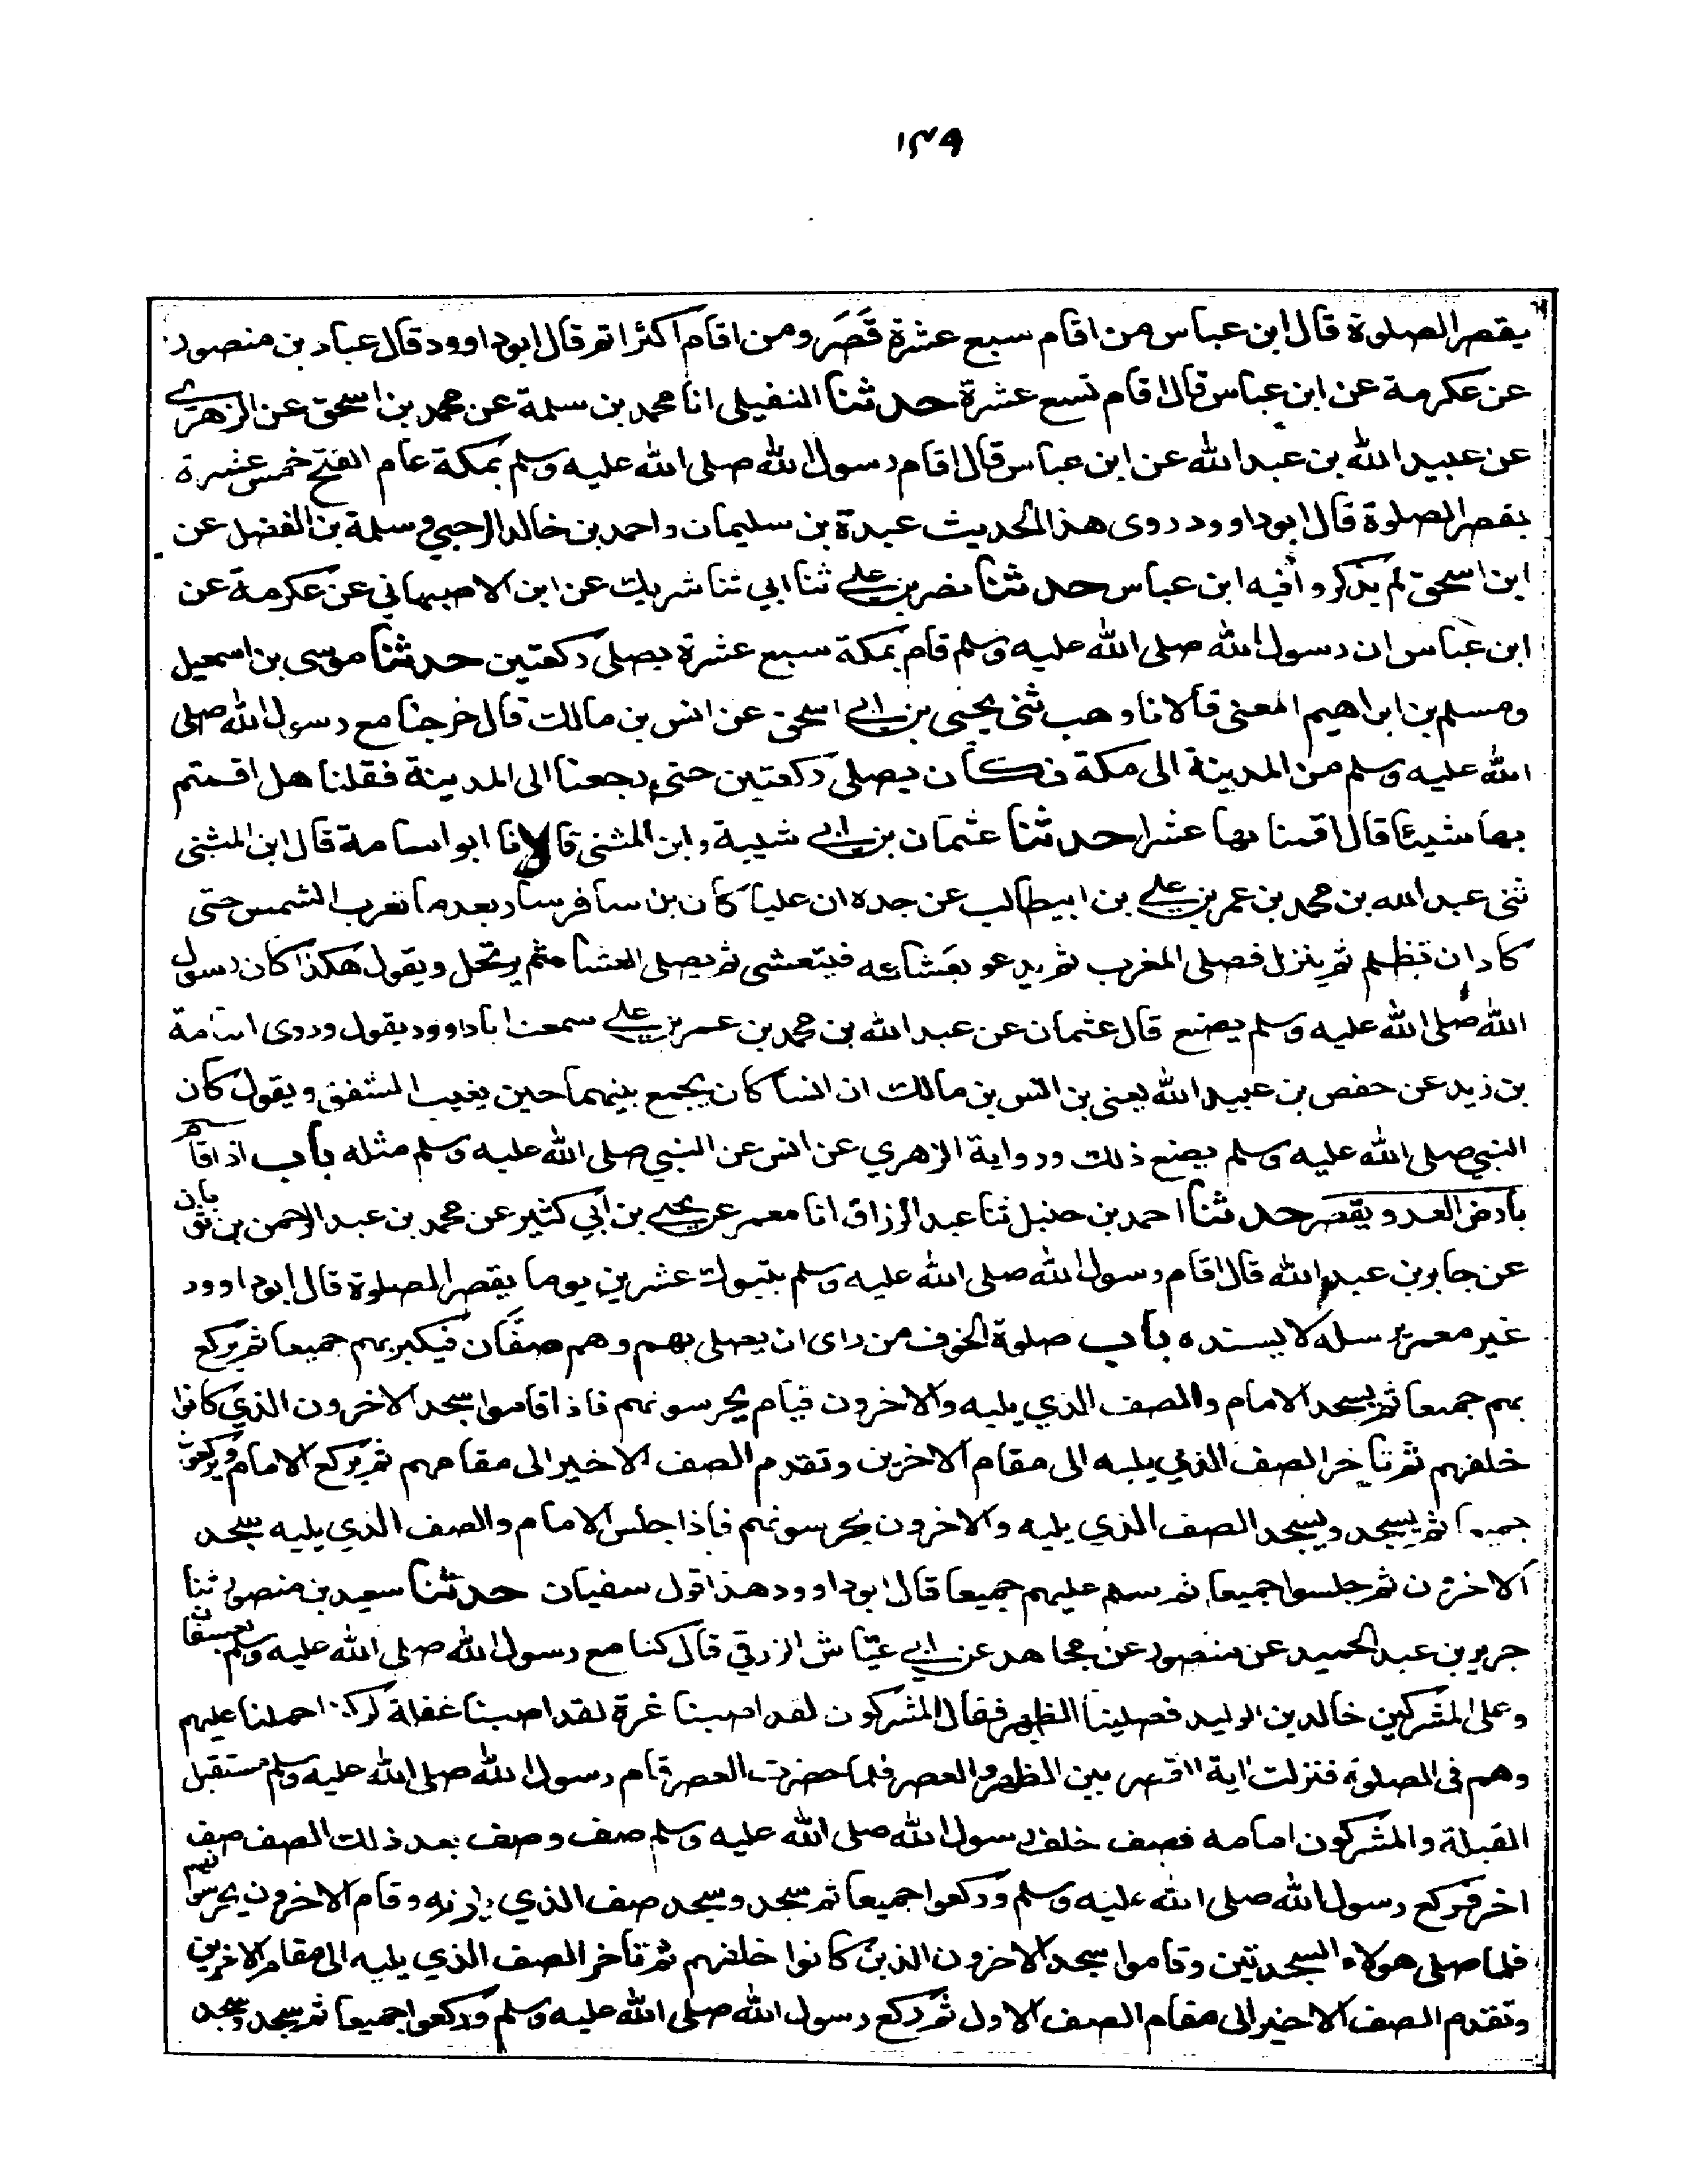 ١٤٩
يقصر الصلوة قال ابن عباس من اقام سبع عشرة قَصَر ومن اقام اكثر اتم قال ابو داوود قال عباد بن منصور
عن عكرمة عن ابن عباس قال اقام تسع عشرة حدثنا النفيلى انا محمد بن سلمة عن محمد بن اسحق عن الزهري
عن عبيد الله بن عبد الله عن ابن عباس قال اقام رسول الله صلى الله عليه وسلم بمكة عام الفتح خمس عشرة
يقصر الصلوة قال ابو داوود روى هذا الحديث عبدة بن سليمان واحمد بن خالد الرحبي وسلمة بن الفضل عن
ابن اسحق لم يذكروا فيه ابن عباس حدثنا نصر بن علي ثنا ابي ثنا شريك عن ابن الاصبهاني عن عكرمة عن
ابن عباس ان رسول الله صلى الله عليه وسلم قام بمكة سبع عشرة يصلى ركعتين حدثنا موسى بن اسمعيل
ومسلم بن ابراهيم المعنى قالا نا وهب ثنى يحيى بن ابي اسحق عن انس بن مالك قال خرجنا مع رسول الله صلى
الله عليه وسلم من المدينة الى مكة فكان يصلى ركعتين حتى رجعنا الى المدينة فقلنا هل اقمتم
بها شيئا قال اقمنا بها عشرا حدثنا عثمان بن ابي شيبة وابن المثنى قالا نا ابو اسامة قال ابن المثنى
ثنى عبد الله بن محمد بن عمر بن علي بن ابيطالب عن جده ان عليا كان بن سافر سار بعد ما تغرب الشمس حتى
كاد ان تظلم ثم ينزل فصلى المغرب ثم يدعو بعشائه فيتعشى ثم يصلى العشا ثم يرتحل ويقول هكذا كان رسول
الله صلى الله عليه وسلم يصنع قال عثمان عن عبد الله بن محمد بن عمر بن علي سمعت ابا داوود يقول وروى اسامة
بن زيد عن حفص بن عبيد الله يعنى بن انس بن مالك ان انسا كان يجمع بينهما حين يغيب الشفق ويقول كان
النبي صلى الله عليه وسلم يصنع ذلك ورواية الزهري عن انس عن النبي صلى الله عليه وسلم مثله باب اذ اقام
بارض العدو يقصر حدثنا احمد بن حنبل ثنا عبد الرزاق انا معمر عن يحيي بن أبي كثير عن محمد بن عبد الرحمن بن ثوبان
عن جابر بن عبد الله قال اقام رسول الله صلى الله عليه وسلم بتبوك عشرين يوما يقصر الصلوة قال ابو داوود
غير معمر يرسله لا يسنده باب صلوة الخوف من راى ان يصلى بهم وهم صفَّان فيكبر بهم جميعا ثم يركع
بهم جميعا ثم يسجد الامام والصف الذي يليه والاخرون قيام يحرسونهم فاذا قاموا سجد الاخرون الذي كانوا
خلفهم ثم تاخر الصف الذي يليه الى مقام الاخرين وتقدم الصف الاخير الى مقامهم ثم يركع الامام ويركعون
جميعا ثم يسجد ويسجد الصف الذي يليه والاخرون يحرسونهم فاذا جلس الامام والصف الذي يليه سجد
الاخرون ثم جلسوا جميعا ثم سلم عليهم جميعا قال ابو داوود هذا قول سفيان حدثنا سعيد بن منصور ثنا
جرير بن عبد الحميد عن منصور عن مجاهد عن ابي عيّاش الزرقي قال كنا مع رسول الله صلى الله عليه وسلم بعسفان
وعلى المشركين خالد بن الوليد فصلينا الظهر فقال المشركون لقد اصبنا غرة لقد اصبنا غفلة لو كنا حملنا عليهم
وهم فى الصلوة فنزلت اية القصر بين الظهر والعصر فلما حضرت العصر قام رسول الله صلى الله عليه وسلم مستقبل
القبلة والمشركون امامه فصف خلف رسول الله صلى الله عليه وسلم صف وصف بعد ذلك الصف صف
اخر فركع رسول الله صلى الله عليه وسلم وركعوا جميعا ثم سجد وسجد صف الذي يلونه وقام الاخرون يحرسونهم
فلما صلى هولاء السجدتين وقاموا سجد الاخرون الذين كانوا خلفهم ثم تاخر الصف الذي يليه الى مقام الاخرين
وتقدم الصف الاخير الى مقام الصف الاول ثم ركع رسول الله صلى الله عليه وسلم وركعوا جميعا ثم سجد وسجد